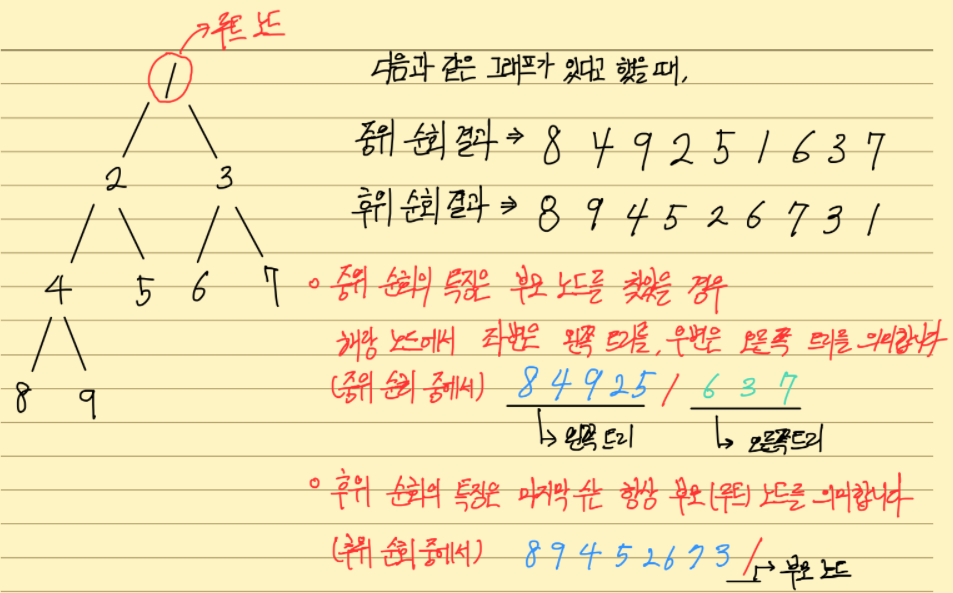 루트 노드
1
2 3
4 5 6 7
8 9
다음과 같은 그래프가 있다고 했을 때,
중위 순회 결과 ⇒ 8 4 9 2 5 1 6 3 7
후위 순회 결과 ⇒ 8 9 4 5 2 6 7 3 1
중위 순회의 특징은 부모 노드를 찾았을 경우
해당 노드에서 좌변은 왼쪽 트리를, 우변은 오른쪽 트리를 의미합니다
(중위 순회 중에서) 8 4 9 2 5 1 6 3 7
왼쪽 트리 오른쪽 트리
후위 순회의 특징은 마지막 수는 항상 부모 (루트) 노드를 의미합니다
(후위 순회 중에서) 8 9 4 5 2 6 7 3 1
부모 노드